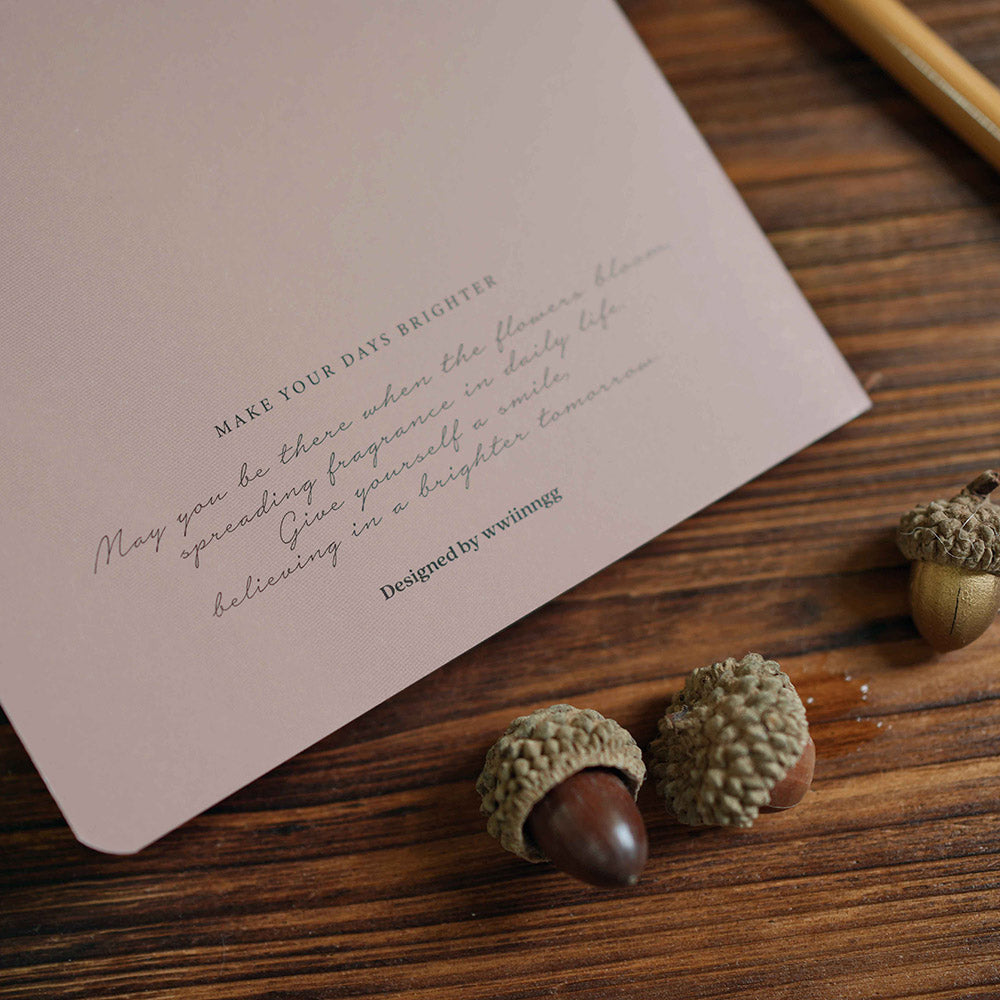 MAKE YOUR DAYS BRIGHTER
May you be there when the flowers bloom,
spreading fragrance in daily life.
Give yourself a smile,
believing in a brighter tomorrow.
Designed by wwiinngg